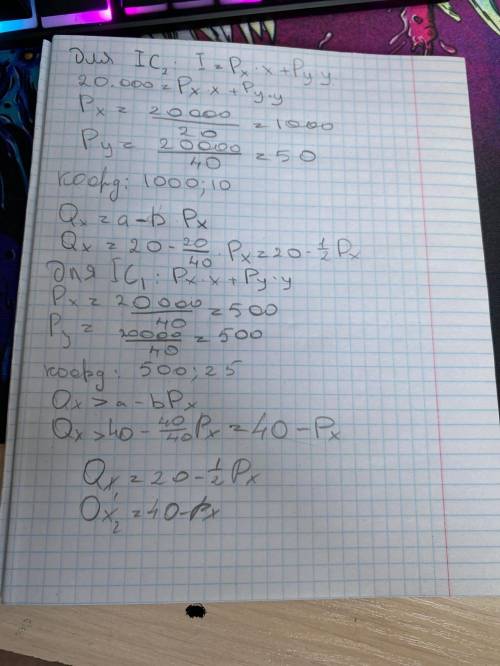 для IC₂: I = Pₓ · x + Py y
20.000 = Pₓ x + Py · y
Pₓ = 20000/20 = 1000
Py = 20000/40 = 50
коорд: 1000; 10
Qₓ = a - b Pₓ
Qₓ = 20 - 20/40 · Pₓ = 20 - 1/2 Pₓ
для IC₁: Pₓ · x + Py · y
Pₓ = 20000/40 = 500
Py = 20000/40 = 500
коорд: 500; 25
Qₓ > a - bPₓ
Qₓ > 40 - 40/40 Pₓ = 40 - Pₓ
Qₓ₁ = 20 - 1/2 Pₓ
Qₓ₂ = 40 - Pₓ